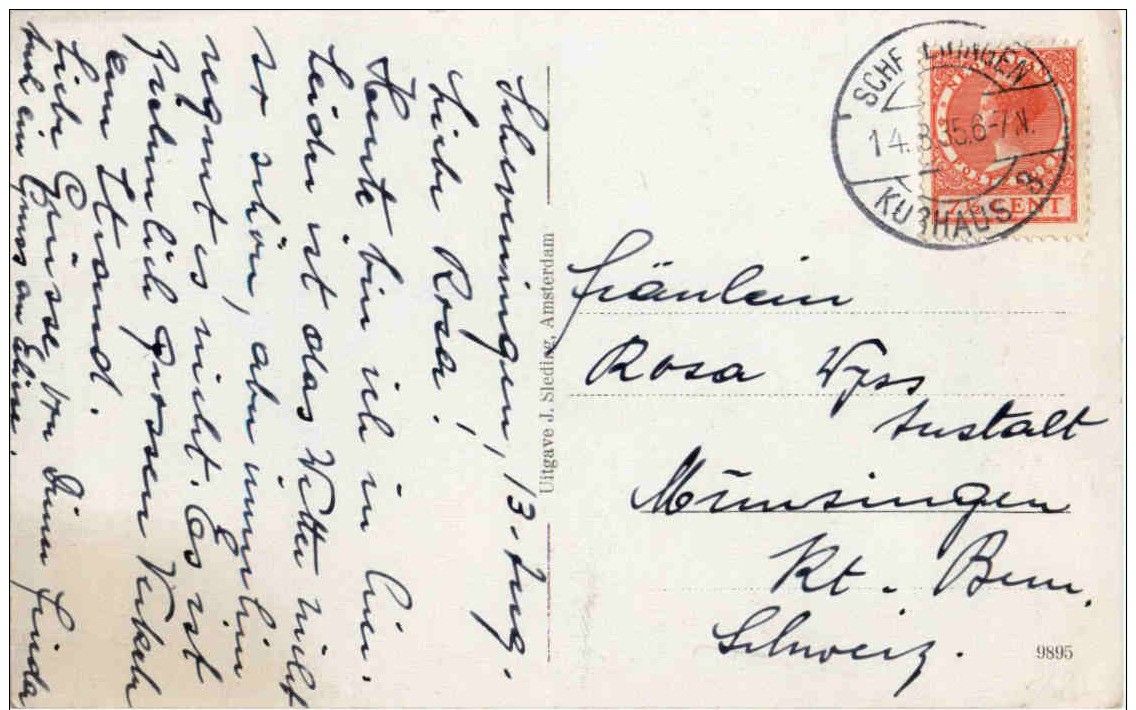 Scheveningen, 13. Aug.
Liebe Rosa!
Heute bin ich in hier.
Leider ist das Wetter nicht
so schön, aber immerhin
regnet es nicht. Es ist
ziemlich grossen Verkehr
am Strand.
Liebe Grüsse von Deiner Frieda
auch ein Gruss an Eline.
Uitgave J. Sleding, Amsterdam
SCHEVENINGEN
14.8.35.6-7N.
KURHAUS 3
7½ CENT
Fräulein
Rosa Wyss
Anstalt
Münsingen
Kt. Bern.
Schweiz.
9895